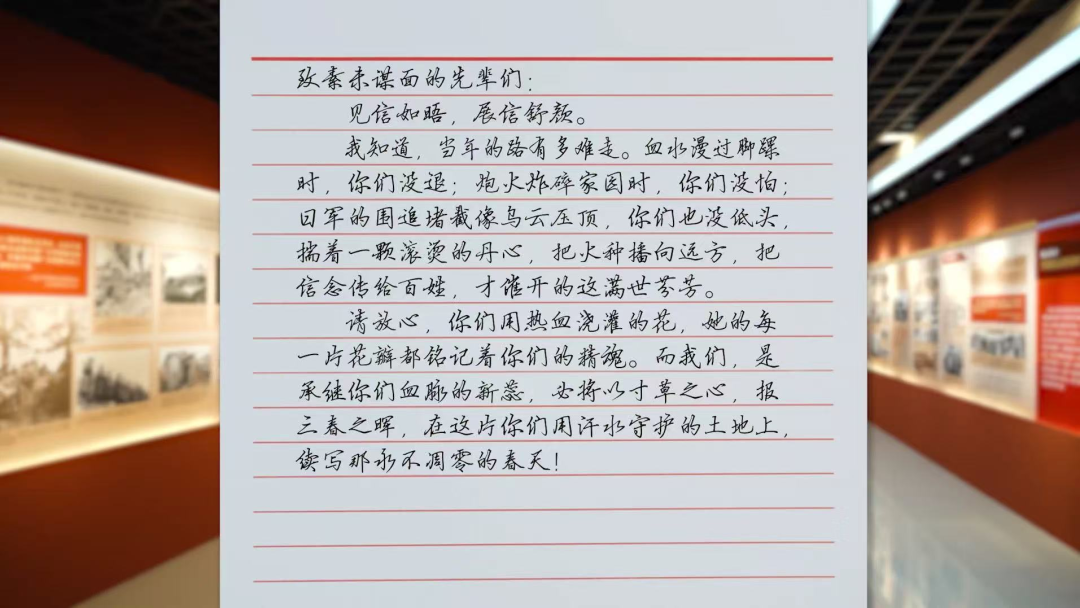 致素未谋面的先辈们：
见信如晤，展信舒颜。
我知道，当年的路有多难走。血水漫过脚踝
时，你们没退；炮火炸碎家园时，你们没怕；
日军的围追堵截像乌云压顶，你们也没低头，
揣着一颗滚烫的丹心，把火种播向远方，把
信念传给百姓，才催开的这满世芬芳。
请放心，你们用热血浇灌的花，她的每
一片花瓣都铭记着你们的精魂。而我们，是
承继你们血脉的新蕊，必将以寸草之心，报
三春之晖，在这片你们用汗水守护的土地上，
续写那永不凋零的春天！